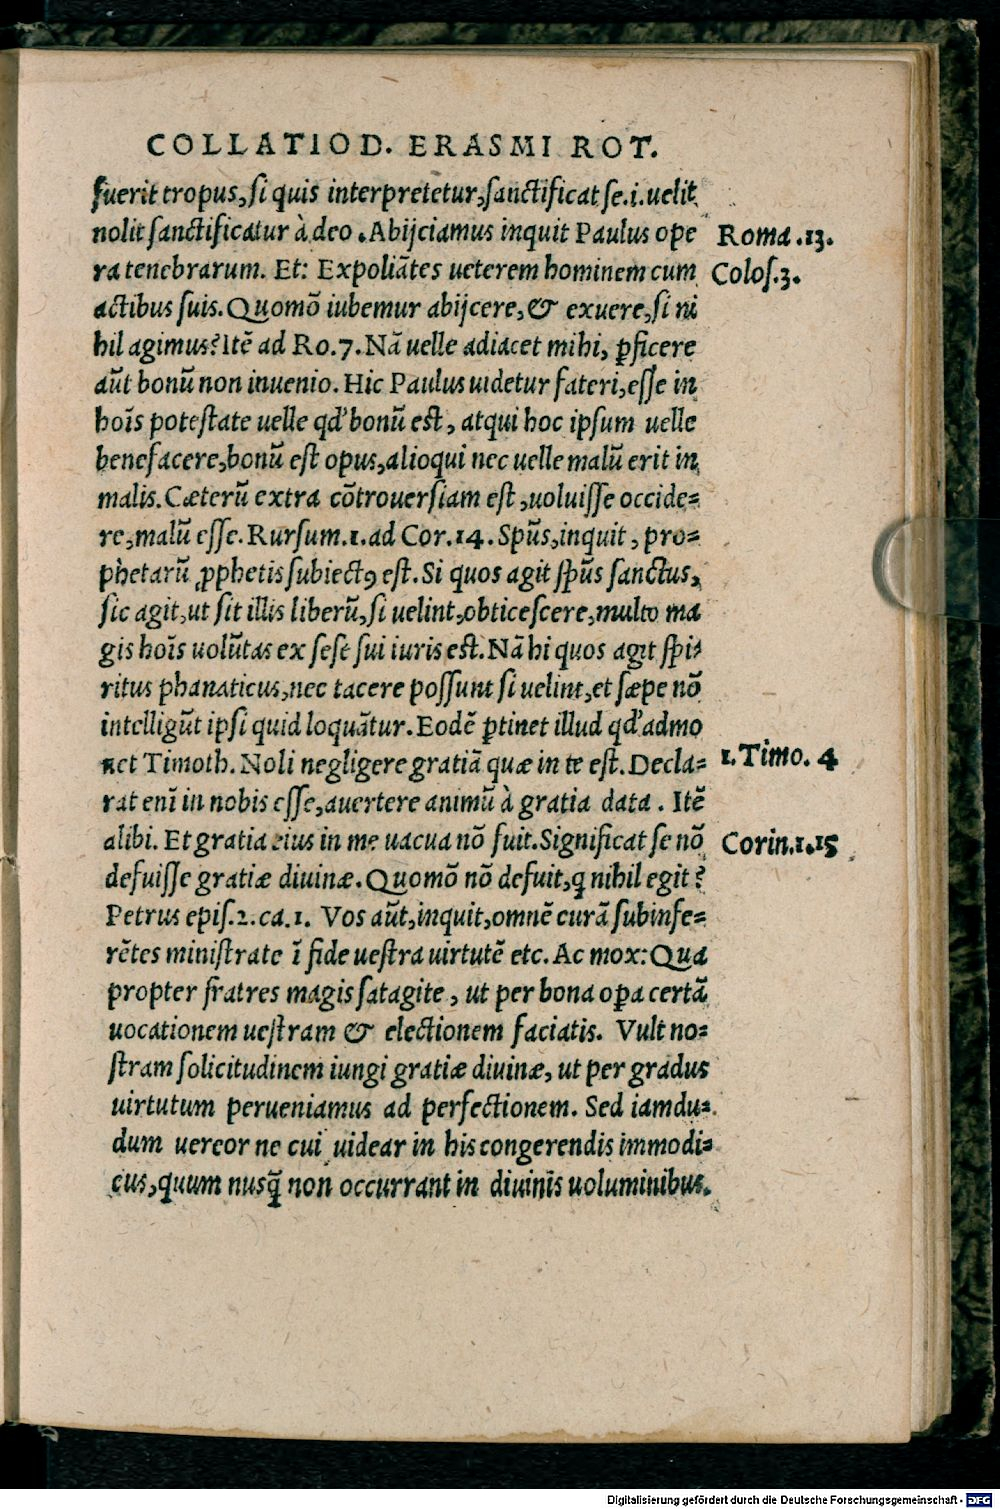 COLLATIO D. ERASMI ROT.
fuerit tropus, si quis interpretetur, sanctificat se .i. uelit
nolit sanctificatur à deo . Abijciamus inquit Paulus ope
Roma .13.
ra tenebrarum. Et: Expoliãtes ueterem hominem cum
Colos.3.
actibus suis. Quomõ iubemur abijcere, & exuere, si ni
hil agimus? Itẽ ad Ro.7. Nã uelle adiacet mihi, ꝑficere
aũt bonũ non inuenio. Hic Paulus uidetur fateri, esse in
hoĩs potestate uelle qd' bonũ est, atqui hoc ipsum uelle
benefacere, bonũ est opus, alioqui nec uelle malũ erit in
malis. Cæterũ extra cõtrouersiam est, uoluisse occide=
re, malũ esse. Rursum.1. ad Cor.14. Spũs, inquit, pro=
phetarũ ꝓphetis subiectꝰ est. Si quos agit spũs sanctus,
sic agit, ut sit illis liberũ, si uelint, obticescere, multo ma
gis hoĩs uolũtas ex sese sui iuris est. Nã hi quos agit spi=
ritus phanaticus, nec tacere possunt si uelint, et sæpe nõ
intelligũt ipsi quid loquãtur. Eodẽ ꝑtinet illud qd' admo
net Timoth. Noli negligere gratiã quæ in te est. Decla=
1. Timo. 4
rat enĩ in nobis esse, auertere animũ à gratia data . Itẽ
alibi. Et gratia eius in me uacua nõ fuit. Significat se nõ
Corin.1.15
defuisse gratiæ diuinæ. Quomõ nõ defuit, ꝗ nihil egit?
Petrus epis.2. ca.1. Vos aũt, inquit, omnẽ curã subinfe=
rẽtes ministrate ĩ fide uestra uirtutẽ etc. Ac mox: Qua
propter fratres magis satagite, ut per bona oꝑa certã
uocationem uestram & electionem faciatis. Vult no=
stram solicitudinem iungi gratiæ diuinæ, ut per gradus
uirtutum perueniamus ad perfectionem. Sed iamdu=
dum uereor ne cui uidear in his congerendis immodi=
cus, quum nusq̃ non occurrant in diuinis uoluminibus.
Digitalisierung gefördert durch die Deutsche Forschungsgemeinschaft - DFG